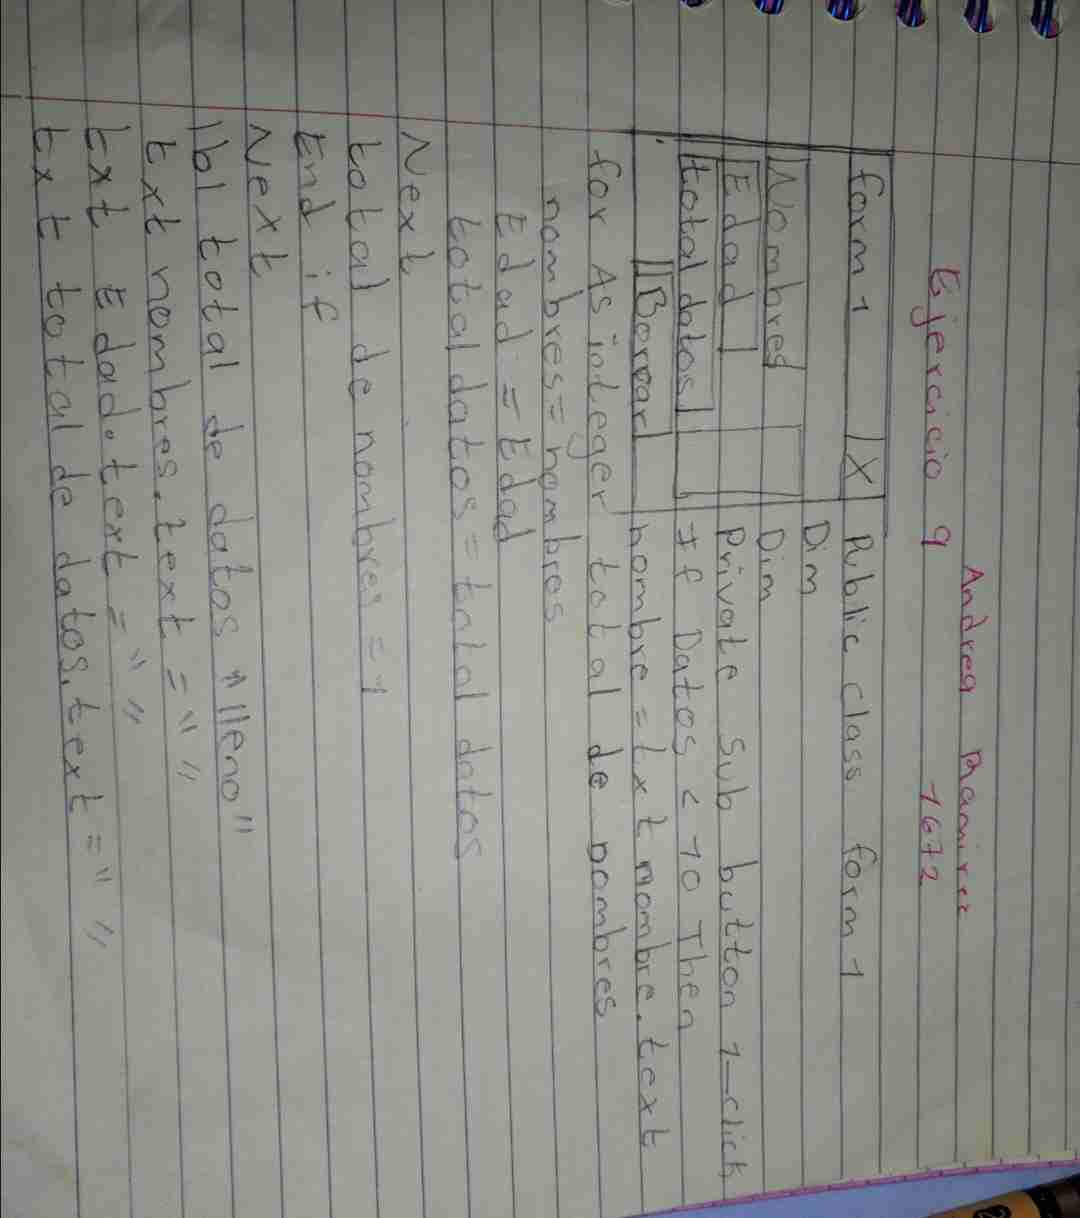 Andrea Ramirez
Ejercicio 9 1672
form 1 X
Nombres
Edad
total datos
Borrar
Public class form 1
Dim
Dim
Private Sub button 1_click
If Datos < 10 Then
nombre = txt nombre.text
for As integer total de nombres
nombres = nombres
Edad = Edad
total datos = total datos
Next
total de nombres = 1
End if
Next
lbl total de datos "lleno"
txt nombres.text = " "
txt Edad.text = " "
txt total de datos.text = " "